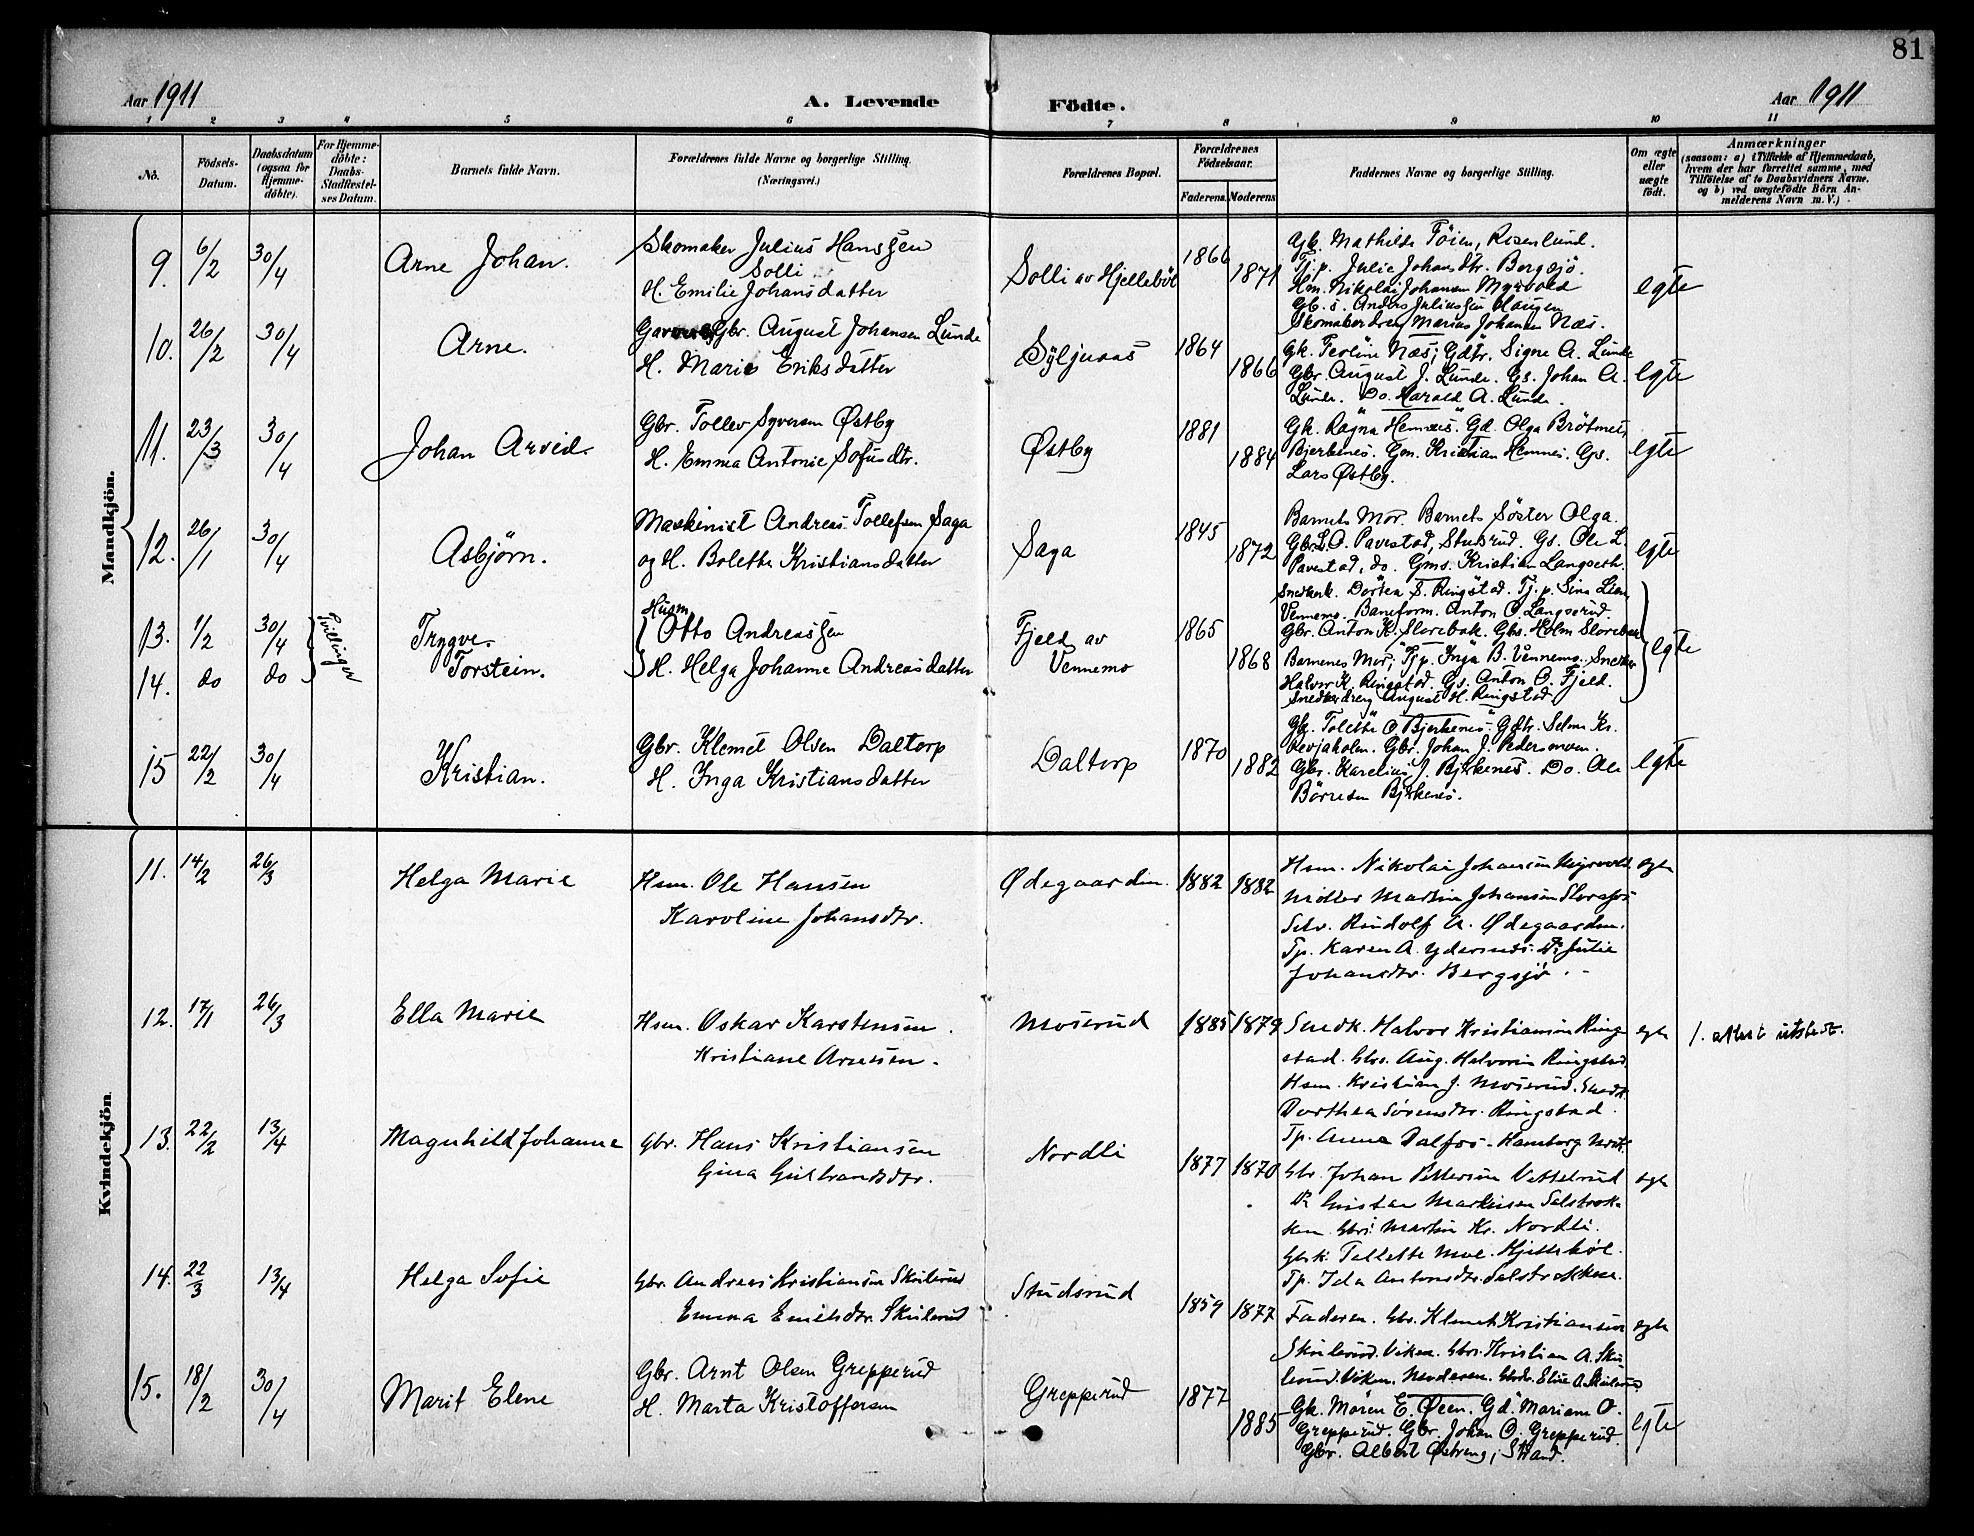 81
Aar 1911
A. Levende Födte.
Aar 1911
1 2 3 4 5 6 7 8 9 10 11
No.
Födsels-Datum.
Daabsdatum (ogsaa for Hjemme-döbte).
For Hjemme-döbte: Daabs-Stadfæstel-ses Datum.
Barnets fulde Navn.
Forældrenes fulde Navne og borgerlige Stilling.
(Næringsvei.)
Forældrenes Bopæl.
Forældrenes Födselsaar.
Faderens. Moderens.
Faddernes Navne og borgerlige Stilling.
Om ægte eller uægte födt.
Anmærkninger
(saasom: a) i Tilfælde af Hjemmedaab,
hvem der har forrettet samme, med
Tilföielse af to Daabsvidners Navne,
og b) ved uægtefödte Börn An-
melderens Navn m. V.)
Mandkjön.
9. 6/2 30/4 Arne Johan.
Skomaker Julius Hanssen
Solli
H. Emilie Johansdatter
Solli av Hjellebøl
1866 1871
Gk. Mathilde Töien, Rosenlund.
Tj.p. Julie Johansdtr. Bergsjö.
Hm. Nikolai Johansen Myrvold
Gb. s. Anders Juliussen Haugen
Skomakerdreng Marius Johansen Næs.
egte
10. 26/2 30/4 Arne.
Gbr. August Johansen Lunde
H. Marie Eriksdatter
Syljuaas
1864 1866
Gk. Teoline Næs; Gdtr. Signe A. Lunde
Gbr. August J. Lunde. Gs. Johan A.
Lunde. Do. Harald A. Lunde.
egte
11. 23/3 30/4 Johan Arvid.
Gbr. Tollev Syversen Østby
H. Emma Antonie Sofusdtr.
Østby
1881 1884
Gk. Ragna Hemnes. Gd. Olga Brötmet,
Bjerkenes. Gm. Kristian Hemnes. Gs.
Lars Østby.
egte
12. 26/1 30/4 Asbjørn.
Maskinist Andreas Tollefsen Saga
og H. Bolette Kristiansdatter
Saga
1845 1872
Barnets Mor. Barnets Söster Olga.
Gbr. L. O. Pavestad, Studsrud. Gs. Ole L.
Pavestad, do. Gms. Kristian Langseth.
egte
13. 1/2 30/4 Trygve.
14. do do Torstein.
Tvillinger
Husm.
Otto Andreassen
H. Helga Johanne Andreasdatter
Fjeld av
Vennemo
1865 1868
Snedkerk. Dortea S. Ringstad. Tj. p. Sina Lien
Vennemo. Baneform. Anton O. Langserud.
Gbr. Anton K. Slorebæk. Gbs. Holm Slorebæk
Barnenes Mor; Tjp. Inga B. Vennemo. Snedker
Halvor K. Ringstad. Gs. Anton O. Fjeld.
Snedkerdreng August H. Ringstad
egte
15 22/2 30/4 Kristian.
Gbr. Klemet Olsen Daltorp
H. Inga Kristiansdatter
Daltorp
1870 1882
Gk. Tolette O. Bjerkenes. Gdtr. Selma Kr.
Gbr. Johan J. Pedersmoen.
Gbr. Karelius J. Bjerkenes. Do. Ole
Börresen Bjerkenes.
egte
Kvindekjön
11. 14/2 26/3 Helga Marie
Hsm. Ole Hansen
Karoline Johansdtr.
Ødegaarden.
1882 1882
Hsm. Nikolai Johansen Myrvold
Möller Martin Johansen Slorafos
Selv. Rudolf A. Ødegaarden.
Tp. Karen A. Ydersnes. Do Julie
Johansdtr. Bergsjö.
egte
12. 17/1 26/3 Ella Marie
Hsm. Oskar Karstensen.
Kristiane Arnesen.
Moserud
1885 1879
Snedk. Halvor Kristiansen Ring
stad. Gbs. Aug. Halvorsen Ringstad
Hsm. Kristian J. Moserud. Snedk.
Dorthea Sörensdtr. Ringstad.
egte
1. attest utstedt.
13. 22/2 13/4 Magnhild Johanne
Gbr. Hans Kristiansen
Gina Gulbrandsdtr.
Nordli
1877 1870
Tp. Anna Dalfos
Gbr. Johan Pettersen Vettelrud
Do Gustav Markusen Solstrek-
ken. Gbr. Martin Kr. Nordli.
Gbrk. Tollette Moe. Hjellebøl.
Tp. Ida Antonsdtr. Solstrekken.
egte
14. 22/3 13/4 Helga Sofie
Gbr. Andreas Kristiansen Skulerud
Emma Emilsdtr. Skulerud
Studsrud
1859 1877
Faderen. Gbr. Klemet Kristiansen
Skulerud. Viken. Gbs. Kristian A. Sku
lerud. Viken. Moderen. Gbdr. Elise A. Skulerud
egte
15. 18/2 30/4 Marit Elene
Gbr. Arnt Olsen Grepperud
H. Marta Kristoffersen
Grepperud
1877 1885
Gk. Maren E. Øren. Gd. Mariane O.
Grepperud. Gbr. Johan O. Grepperud.
Gbr. Albert Østreng, Strand.
egte